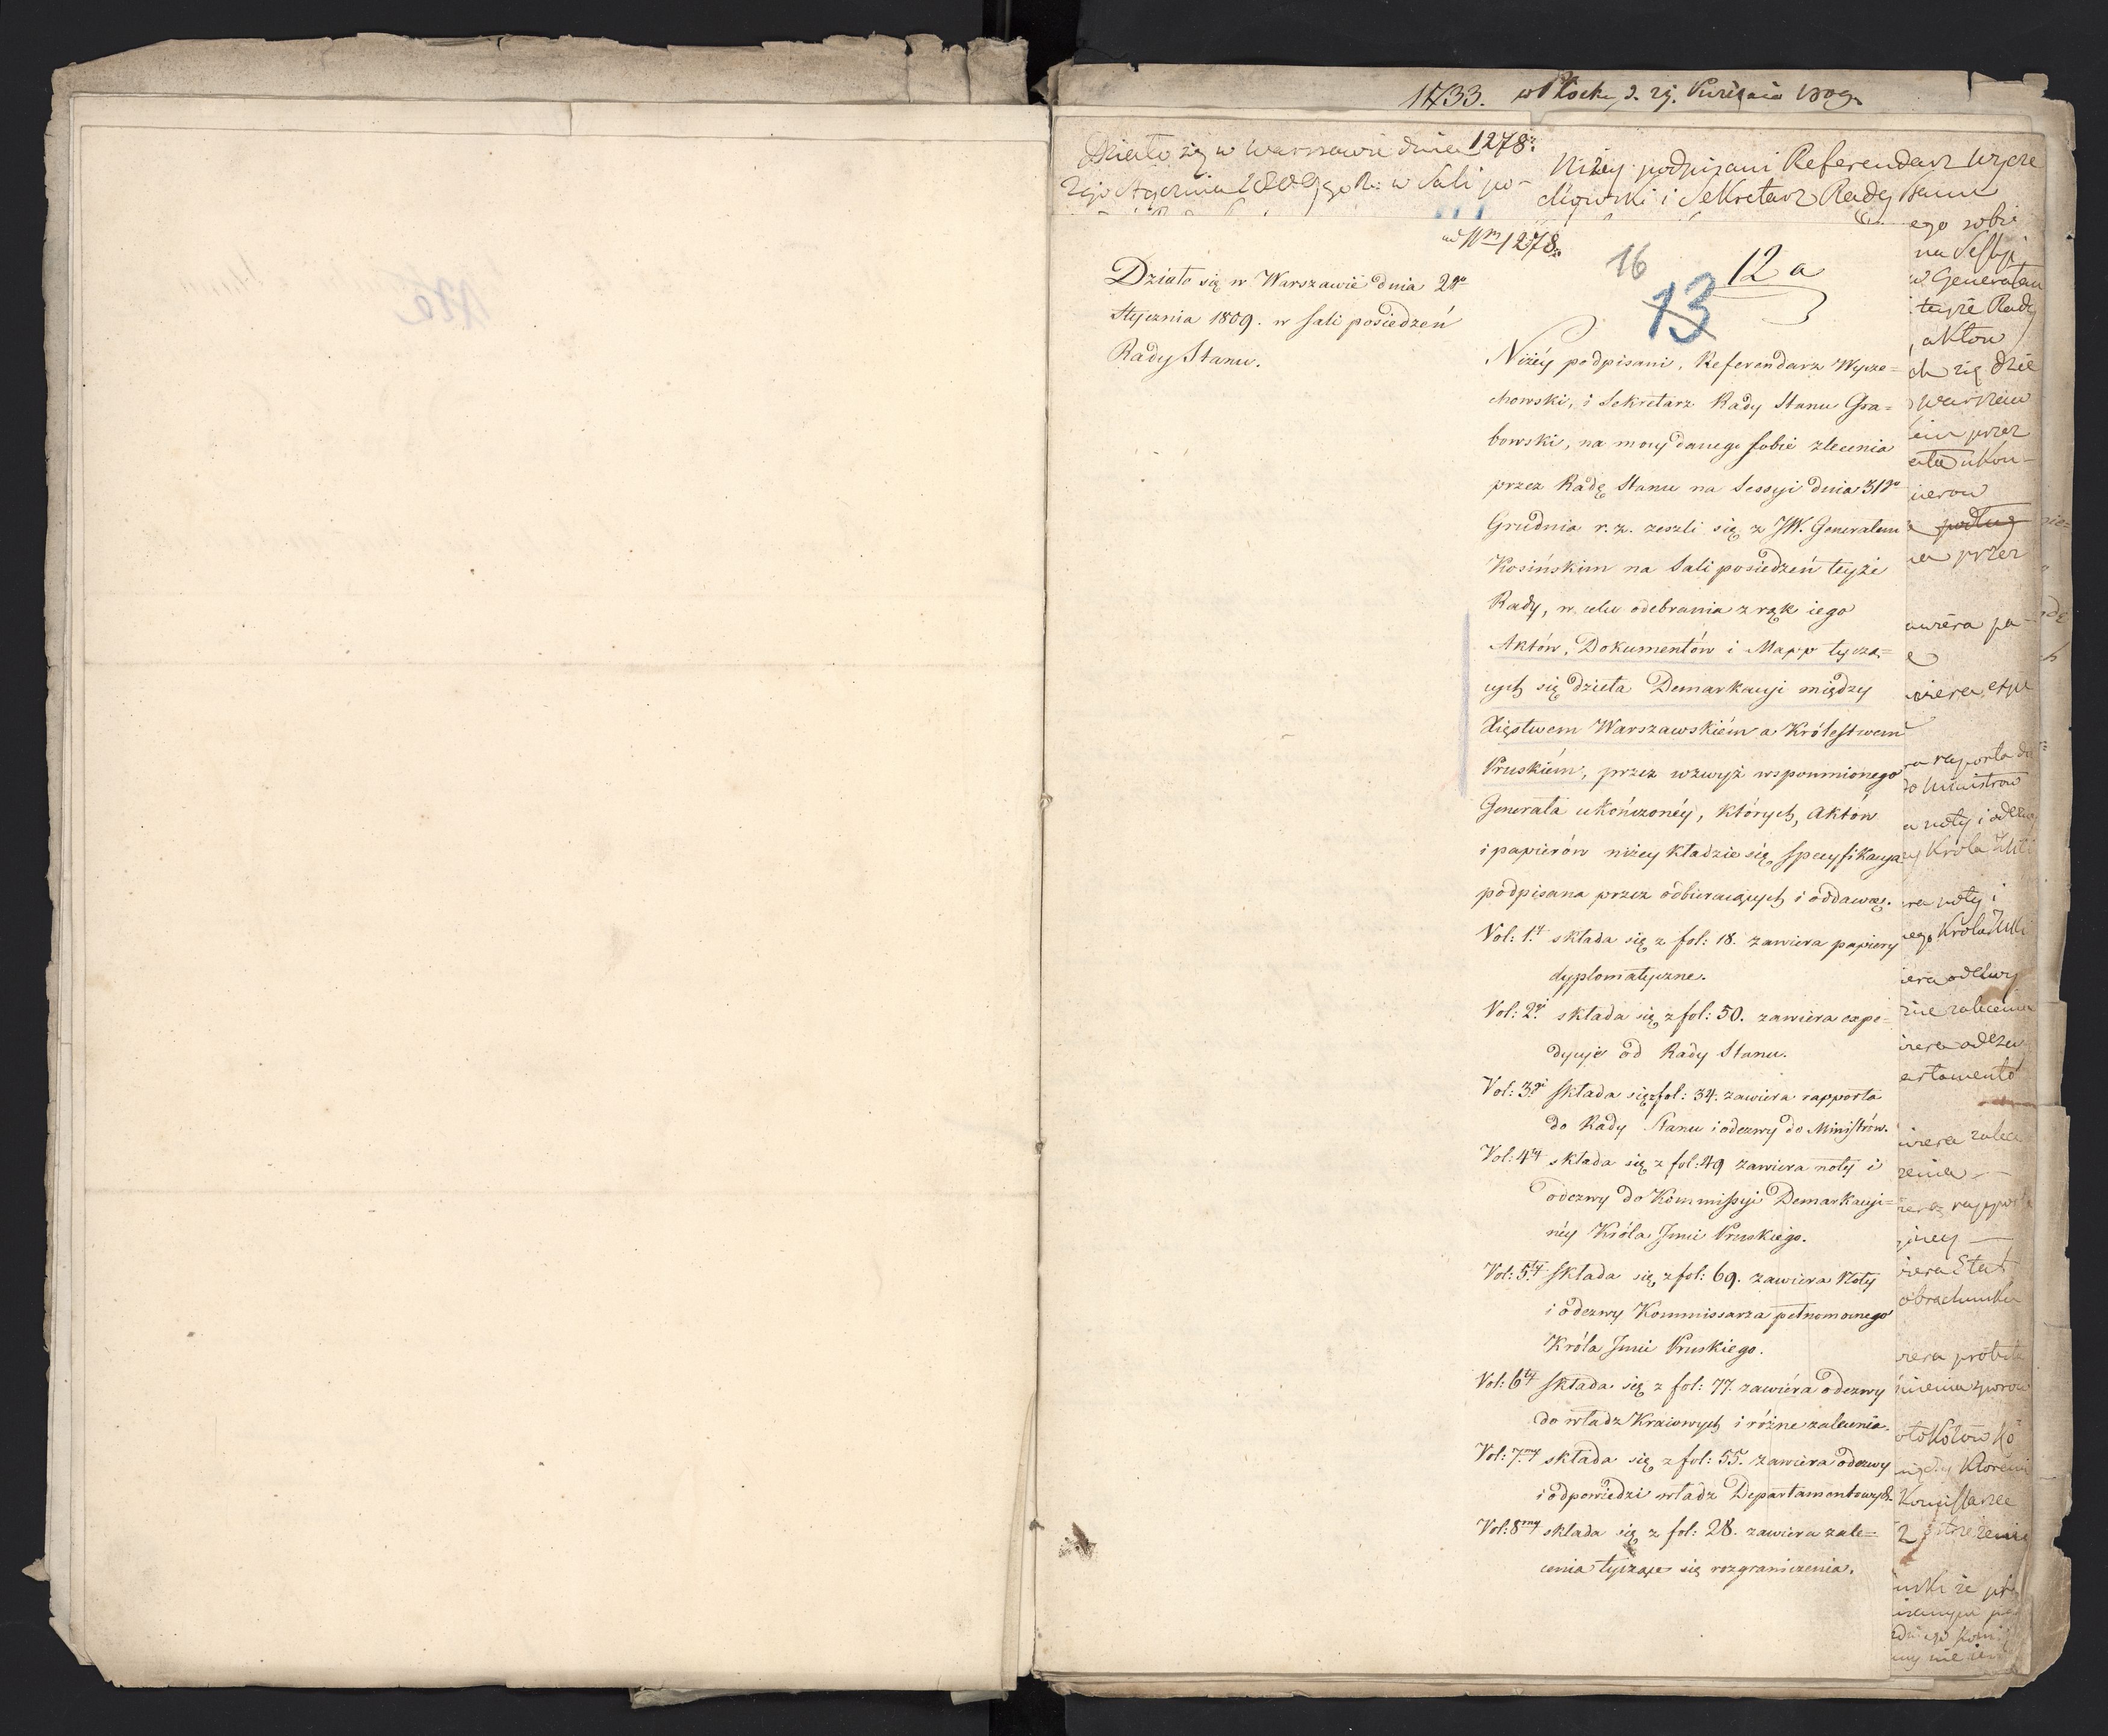 1733. w Płocku d. 29. Kwietnia 1809.
1278.
Działo się w Warszawie dnia
2go Stycznia 1809go R: w Sali po-
Niżey podpisani Referendarz Wycze
chowski i Sekretarz Rady Stanu
ad Nrm 1278.
16
12 a
13
Działo się w Warszawie dnia 2go
Stycznia 1809. w sali posiedzeń
Rady Stanu.
Niżéy podpisani, Referendarz Wycze=
chowski, i Sekretarz Rady Stanu Gra=
bowski, na mocy danego sobie zlecenia
przez Radę Stanu na Sessyi dnia 31go
Grudnia r. z. zeszli się z JW. Generałem
Kosińskim na Sali posiedzeń teyże
Rady, w celu odebrania z rąk iego
Aktów, Dokumentów i Mapp tycza,=
cych się dzieła Demarkacyi między
Xięstwem Warszawskiém a Królestwem
Pruskiém, przez wzwyż wspomnionego
Generała ukończonéy, których, Aktów
i papierów niżey kładzie się specyfikacya
podpisana przez odbieraiących i oddawcę.
Vol: 1.y składa się z fol: 18. zawiera papiery
dyplomatyczne.
Vol: 2.gi składa się z fol: 50. zawiera expe=
dycyje od Rady Stanu.
Vol: 3.gi składa się z fol: 34. zawiera rapporta
do Rady Stanu i odezwy do Ministrów.
Vol: 4ty składa się z fol: 49 zawiera noty i
odezwy do Kommissyi Demarkacyi=
néy Króla Jmci Pruskiego.
Vol: 5.ty składa się z fol: 69. zawiera Noty
i odezwy Kommissarza pełnomocnego
Króla Jmci Pruskiego.
Vol: 6ty składa się z fol: 77. zawiéra odezwy
do władz Kraiowych i różne zalecenia.
Vol: 7.my składa się z fol: 55. zawiera odezwy
i odpowiedzi władz Departamentowych.
Vol: 8my składa się z fol: 28. zawiera zale=
cenia tyczące się rozgraniczenia.
ego sobie
na Sessyi
w Generałem
teyże Rady
aktow
ch się dzie
Warszaw
przez
ukon-
ierow
podług
przez
awiéra pa-
wiera expe
ra raporta do
do Ministrow
noty i odezwy
Króla Jmci
ra noty i
ego Króla Jmci
iera odezwy
żne zalecenia
iera odezw
artamento
iera zalec
zenia -
rapporta
iera Stat
obrachunku